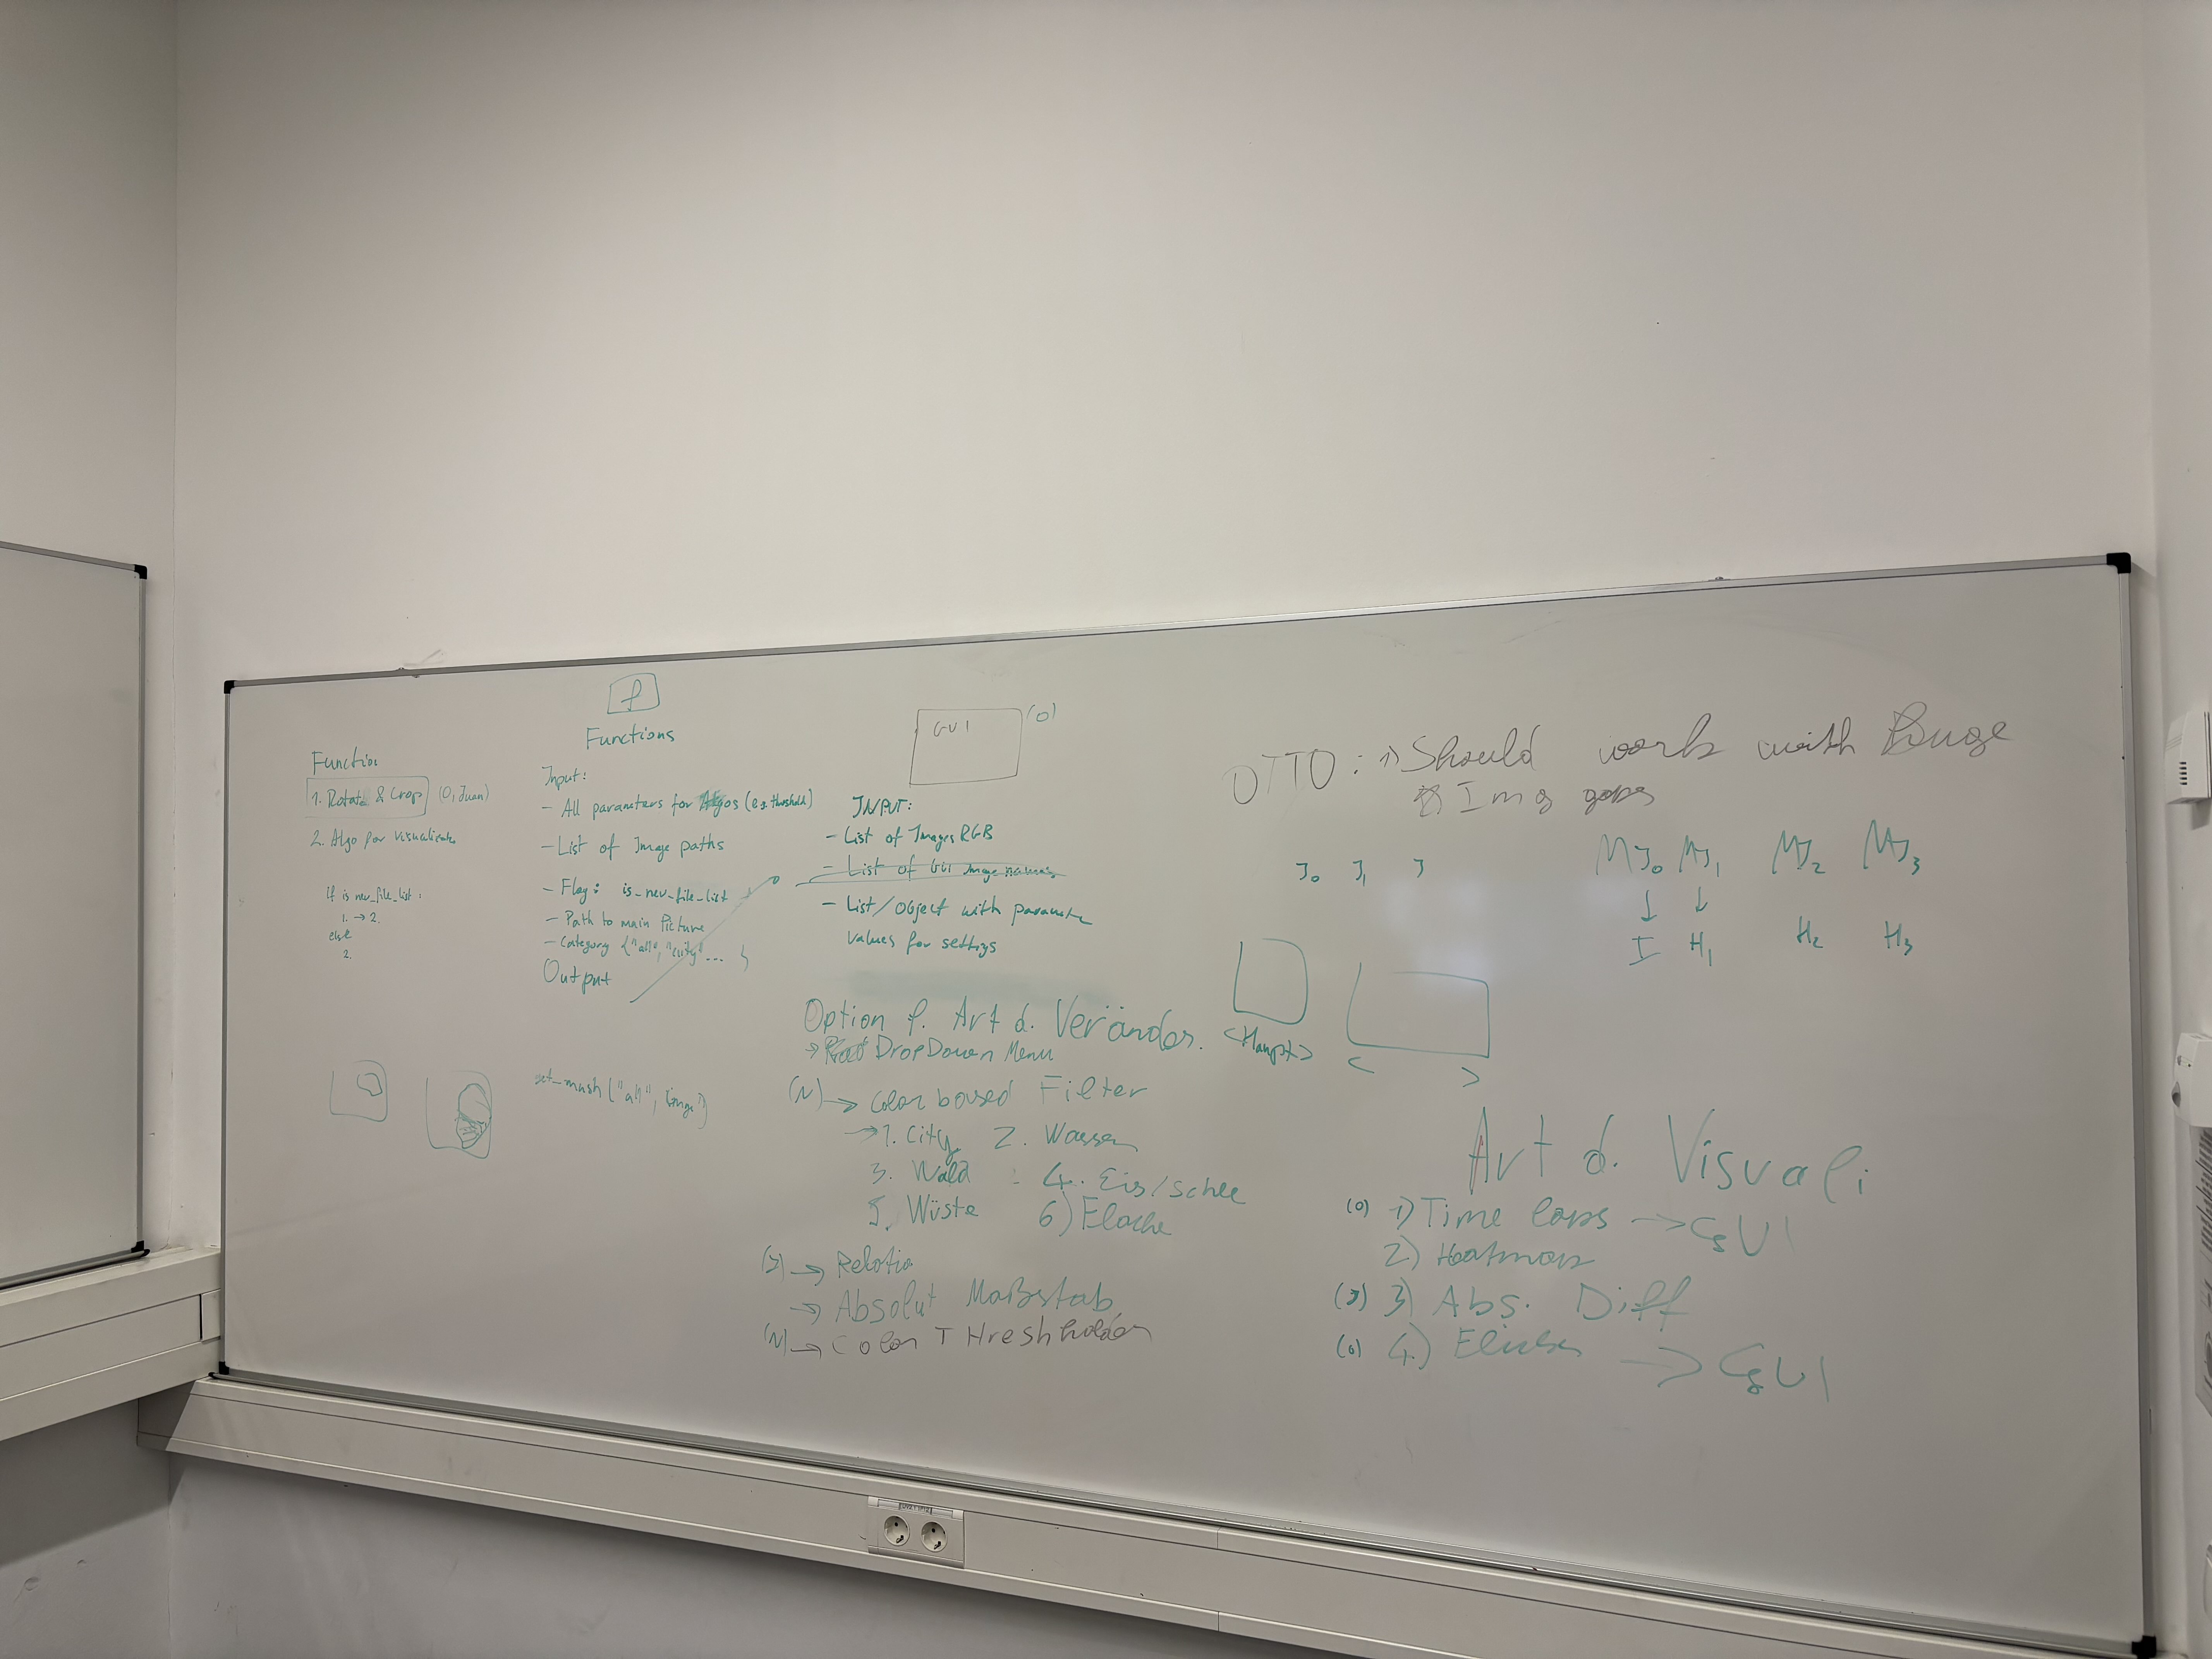 Function
1. Rotate & Crop (O, Juan)
2. Algo for Visualizate
If is new_file_list:
1. → 2.
else
2.
f
Functions
Input:
- All parameters for Algos (e.g. threshold)
- List of Image paths
- Flag: is_new_file_list
- Path to main Picture
- Category {"all", "city", ... }
Output
set_mask("all",
GUI (O)
INPUT:
- List of Images RGB
- List of GUI Image names
- List/Object with parameter
values for settigs
Option f. Art d. Veränder.
→ DropDown Menu
(N) → Color based Filter
→ 1. City 2. Wasser
3. Wald 4. Eis/Schee
5. Wüste 6) Fläche
(J) → Relativ
→ Absolut Maßstab
(N) → Color THreshholder
OTTO: 1) Should work with huge
Img gaps
J₀ J₁ J
MJ₀ MJ₁ MJ₂ MJ₃
↓ ↓
I H₁ H₂ H₃
<Haupt>
< >
Art d. Visuali
(O) 1) Time laps → GUI
2) Heatmap
(J) 3) Abs. Diff
(O) 4.) → GUI